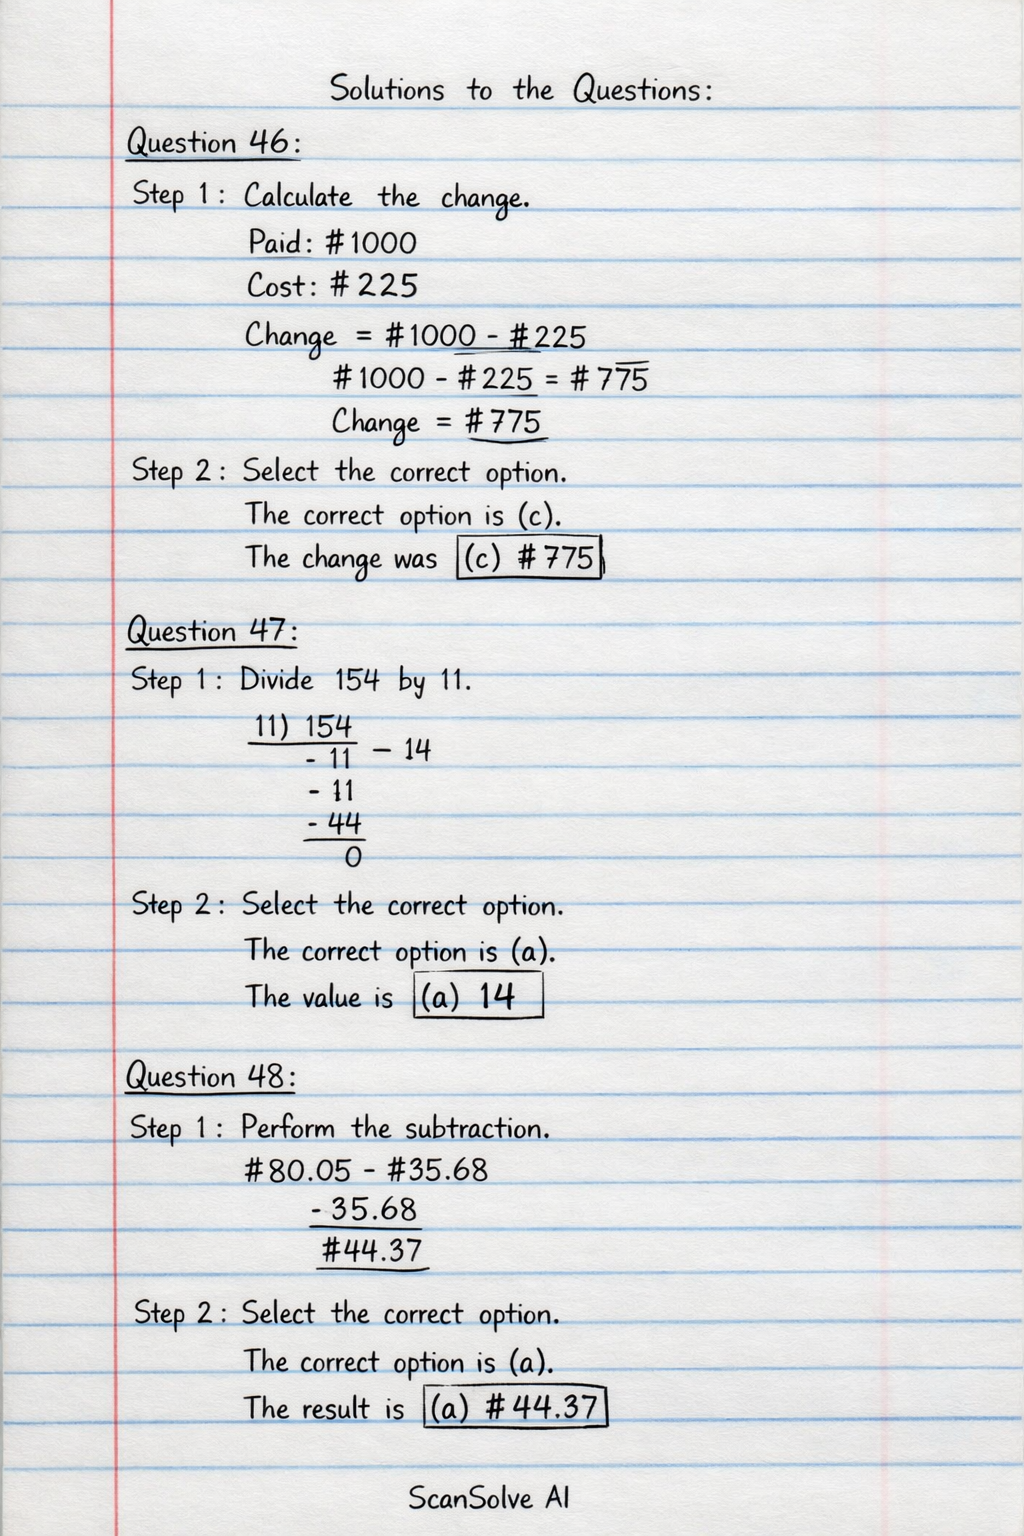 Solutions to the Questions:
Question 46:
Step 1: Calculate the change.
Paid: #1000
Cost: #225
Change = #1000 - #225
#1000 - #225 = #775
Change = #775
Step 2: Select the correct option.
The correct option is (c).
The change was (c) #775
Question 47:
Step 1: Divide 154 by 11.
11) 154
- 11 – 14
- 11
- 44
0
Step 2: Select the correct option.
The correct option is (a).
The value is (a) 14
Question 48:
Step 1: Perform the subtraction.
#80.05 - #35.68
- 35.68
#44.37
Step 2: Select the correct option.
The correct option is (a).
The result is (a) #44.37
ScanSolve AI